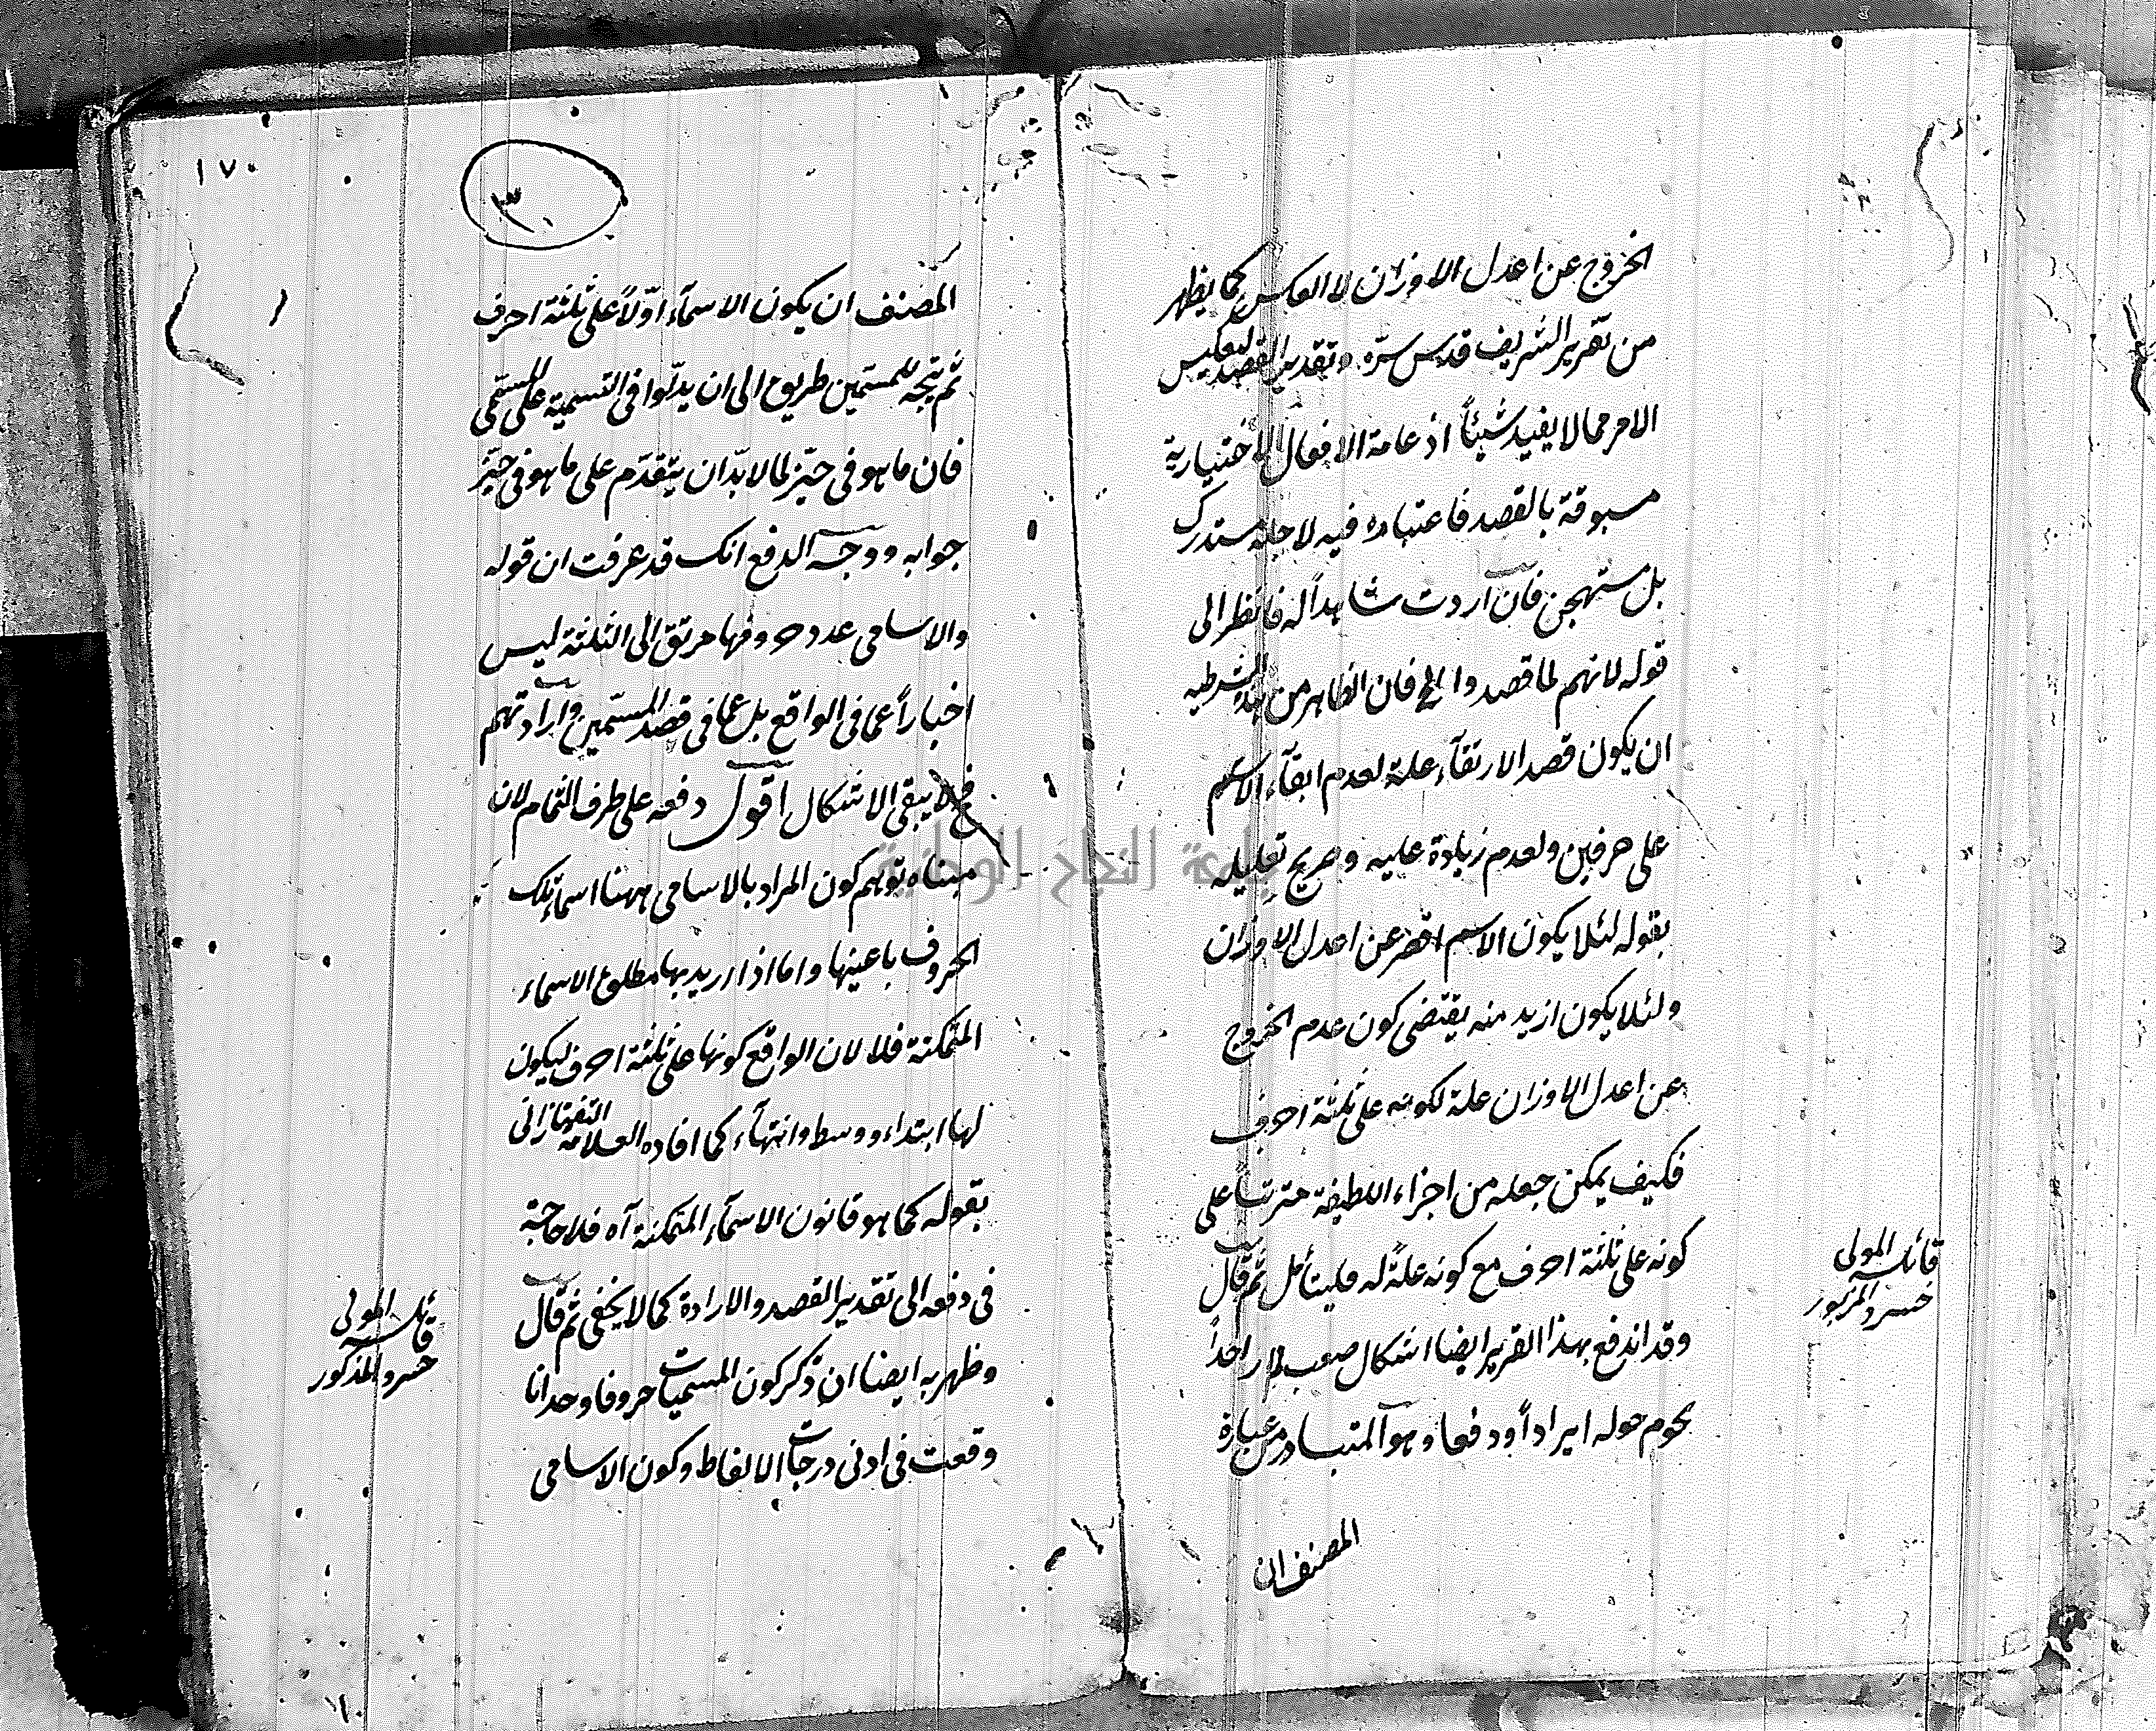 الخروج عن اعدل الاوزان لا العكس كما يظهر
من تقرير الشريف قدس سره وتقدير القصد ليعكس
الامر مما لا يفيد شيئاً اذ عامة الافعال الاختيارية
مسبوقة بالقصد فاعتباره فيه لاجله مستدرك
بل مستهجن فان اردت شاهداً له فانظر الى
قوله لانهم لما قصدوا الخ فان الظاهر من هذه الشرطيه
ان يكون قصد الارتقآء علة لعدم ابقآء الاسم
على حرفين ولعدم زيادة عليه وصريح تعليله
بقوله لئلا يكون الاسم اقصر عن اعدل الاوزان
ولئلا يكون ازيد منه يقتضى كون عدم الخروج
عن اعدل الاوزان علة لكونه على ثلثة احرف
فكيف يمكن جعله من اجزاء اللطيفة مترتباً على
كونه على ثلثة احرف مع كونه علةً له فليتأمل ثم قال
وقد اندفع بهذا التقرير ايضا اشكال صعب لم ار احداً
يحوم حوله ايراداً ودفعا وهو المتبادر من عبارة
المصنف ان
قائله المولى
خسرو المزبور
١٧٠
٣
المصنف ان يكون الاسمآء اوّلاً على ثلثة احرف
ثم يتجه للمسمّين طريق الى ان يدلّوا فى التسمية على المسمّى
فان ما هو فى حيّز لما لا بدّ ان يتقدّم على ما هو فى حيّز
جوابه ووجه الدفع انك قد عرفت ان قوله
والاسامى عدد حروفها مرتق الى الثلثة ليس
اخباراً عما فى الواقع بل عما فى قصد المسمّين وارادتهم
فح لا يبقى الاشكال اقول دفعه على طرف الثمام لان
مبناه توهم كون المراد بالاسامى ههنا اسماء تلك
الحروف باعينها واما اذا اريد بها مطلق الاسماء
المتمكنة فلا لان الواقع كونها على ثلثة احرف ليكون
لها ابتداء ووسط وانتهآء كما افاده العلامة التفتازانى
بقوله كما هو قانون الاسمآء المتمكنة آه فلا حاجة
فى دفعه الى تقدير القصد والارادة كما لا يخفى ثم قال
وظهر به ايضا ان ذكر كون المسميات حروفا وحدانا
وقعت فى ادنى درجات الالفاظ وكون الاسامى
قائله المولى
خسرو المذكور